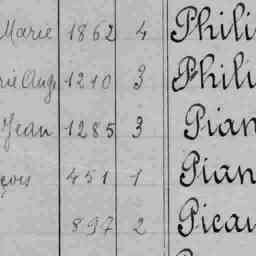 Marie 1862 4 Phili
rie Ang 1210 3 Phili
Jean 1285 3 Pian
çois 451 1 Pian
897 2 Picau